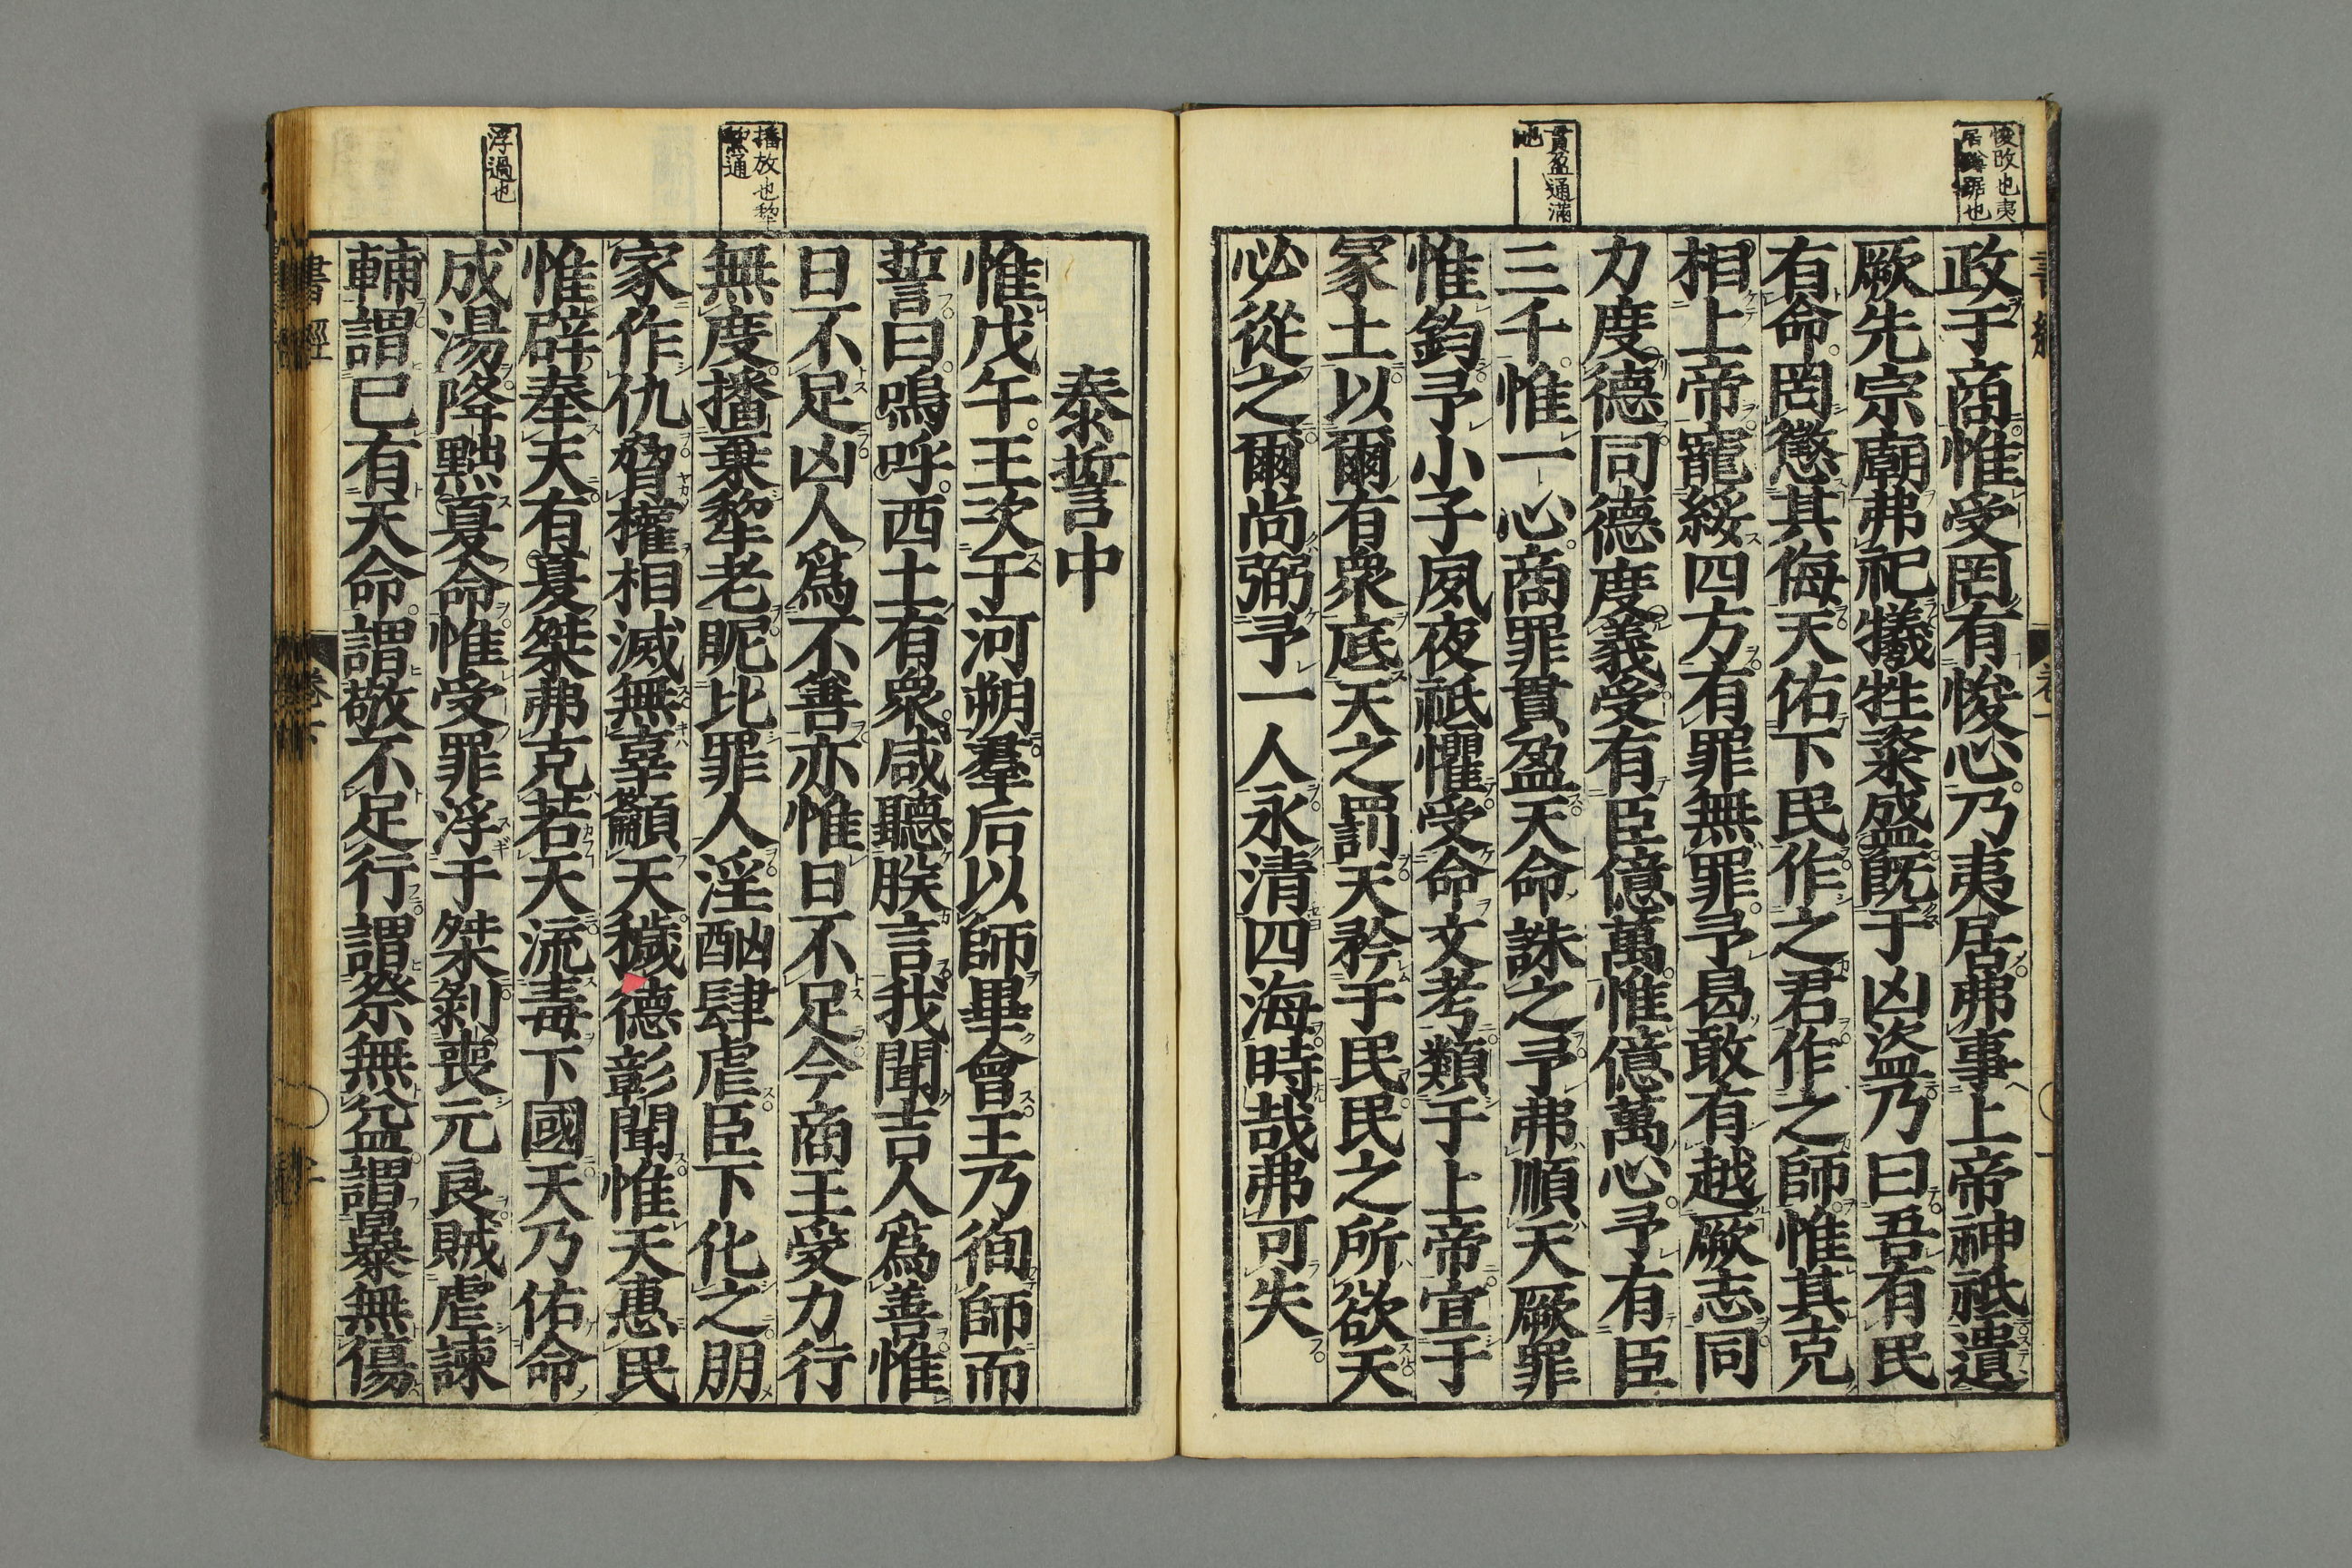 悛改也夷
居蹲踞也
貫盈通滿
也
政于商惟受罔有悛心乃夷居弗事上帝神祇遺
厥先宗廟弗祀犧牲粢盛既于凶盜乃曰吾有民
有命罔懲其侮天佑下民作之君作之師惟其克
相上帝寵綏四方有罪無罪予曷敢有越厥志同
力度德同德度義受有臣億萬惟億萬心予有臣
三千惟一心商罪貫盈天命誅之予弗順天厥罪
惟鈞予小子夙夜祇懼受命文考類于上帝宜于
冢土以爾有衆底天之罰天矜于民民之所欲天
必從之爾尚弼予一人永清四海時哉弗可失
播放也犂
黎通
浮過也
泰誓中
惟戊午王次于河朔羣后以師畢會王乃徇師而
誓曰嗚呼西土有衆咸聽朕言我聞吉人爲善惟
日不足凶人爲不善亦惟日不足今商王受力行
無度播棄犂老昵比罪人淫酗肆虐臣下化之朋
家作仇脅權相滅無辜籲天穢德彰聞惟天惠民
惟辟奉天有夏桀弗克若天流毒下國天乃佑命
成湯降黜夏命惟受罪浮于桀剝喪元良賊虐諫
輔謂已有天命謂敬不足行謂祭無益謂暴無傷
書經
卷下